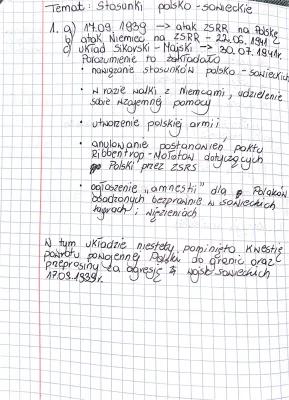 Temat: Stosunki polsko-sowieckie
1. a) 17.09.1939 → atak ZSRR na Polskę
b) atak Niemiec na ZSRR - 22.06.1941
c) układ Sikorski - Majski → 30.07.1941r.
Porozumienie to zakładało
• nawiązanie stosunków polsko-sowieckich
• w razie walki z Niemcami, udzielenie
sobie wzajemnej pomocy
• utworzenie polskiej armii
• anulowanie postanowień paktu
Ribbentrop-Mołotow dotyczących
Polski przez ZSRS
• ogłoszenie "amnestii" dla Polaków
osadzonych bezprawnie w sowieckich
łagrach i więzieniach
W tym układzie niestety pominięto kwestię
powrotu powojennej Polski do granic oraz
przeprosiny za agresję wojsk sowieckich
17.09.1939r.